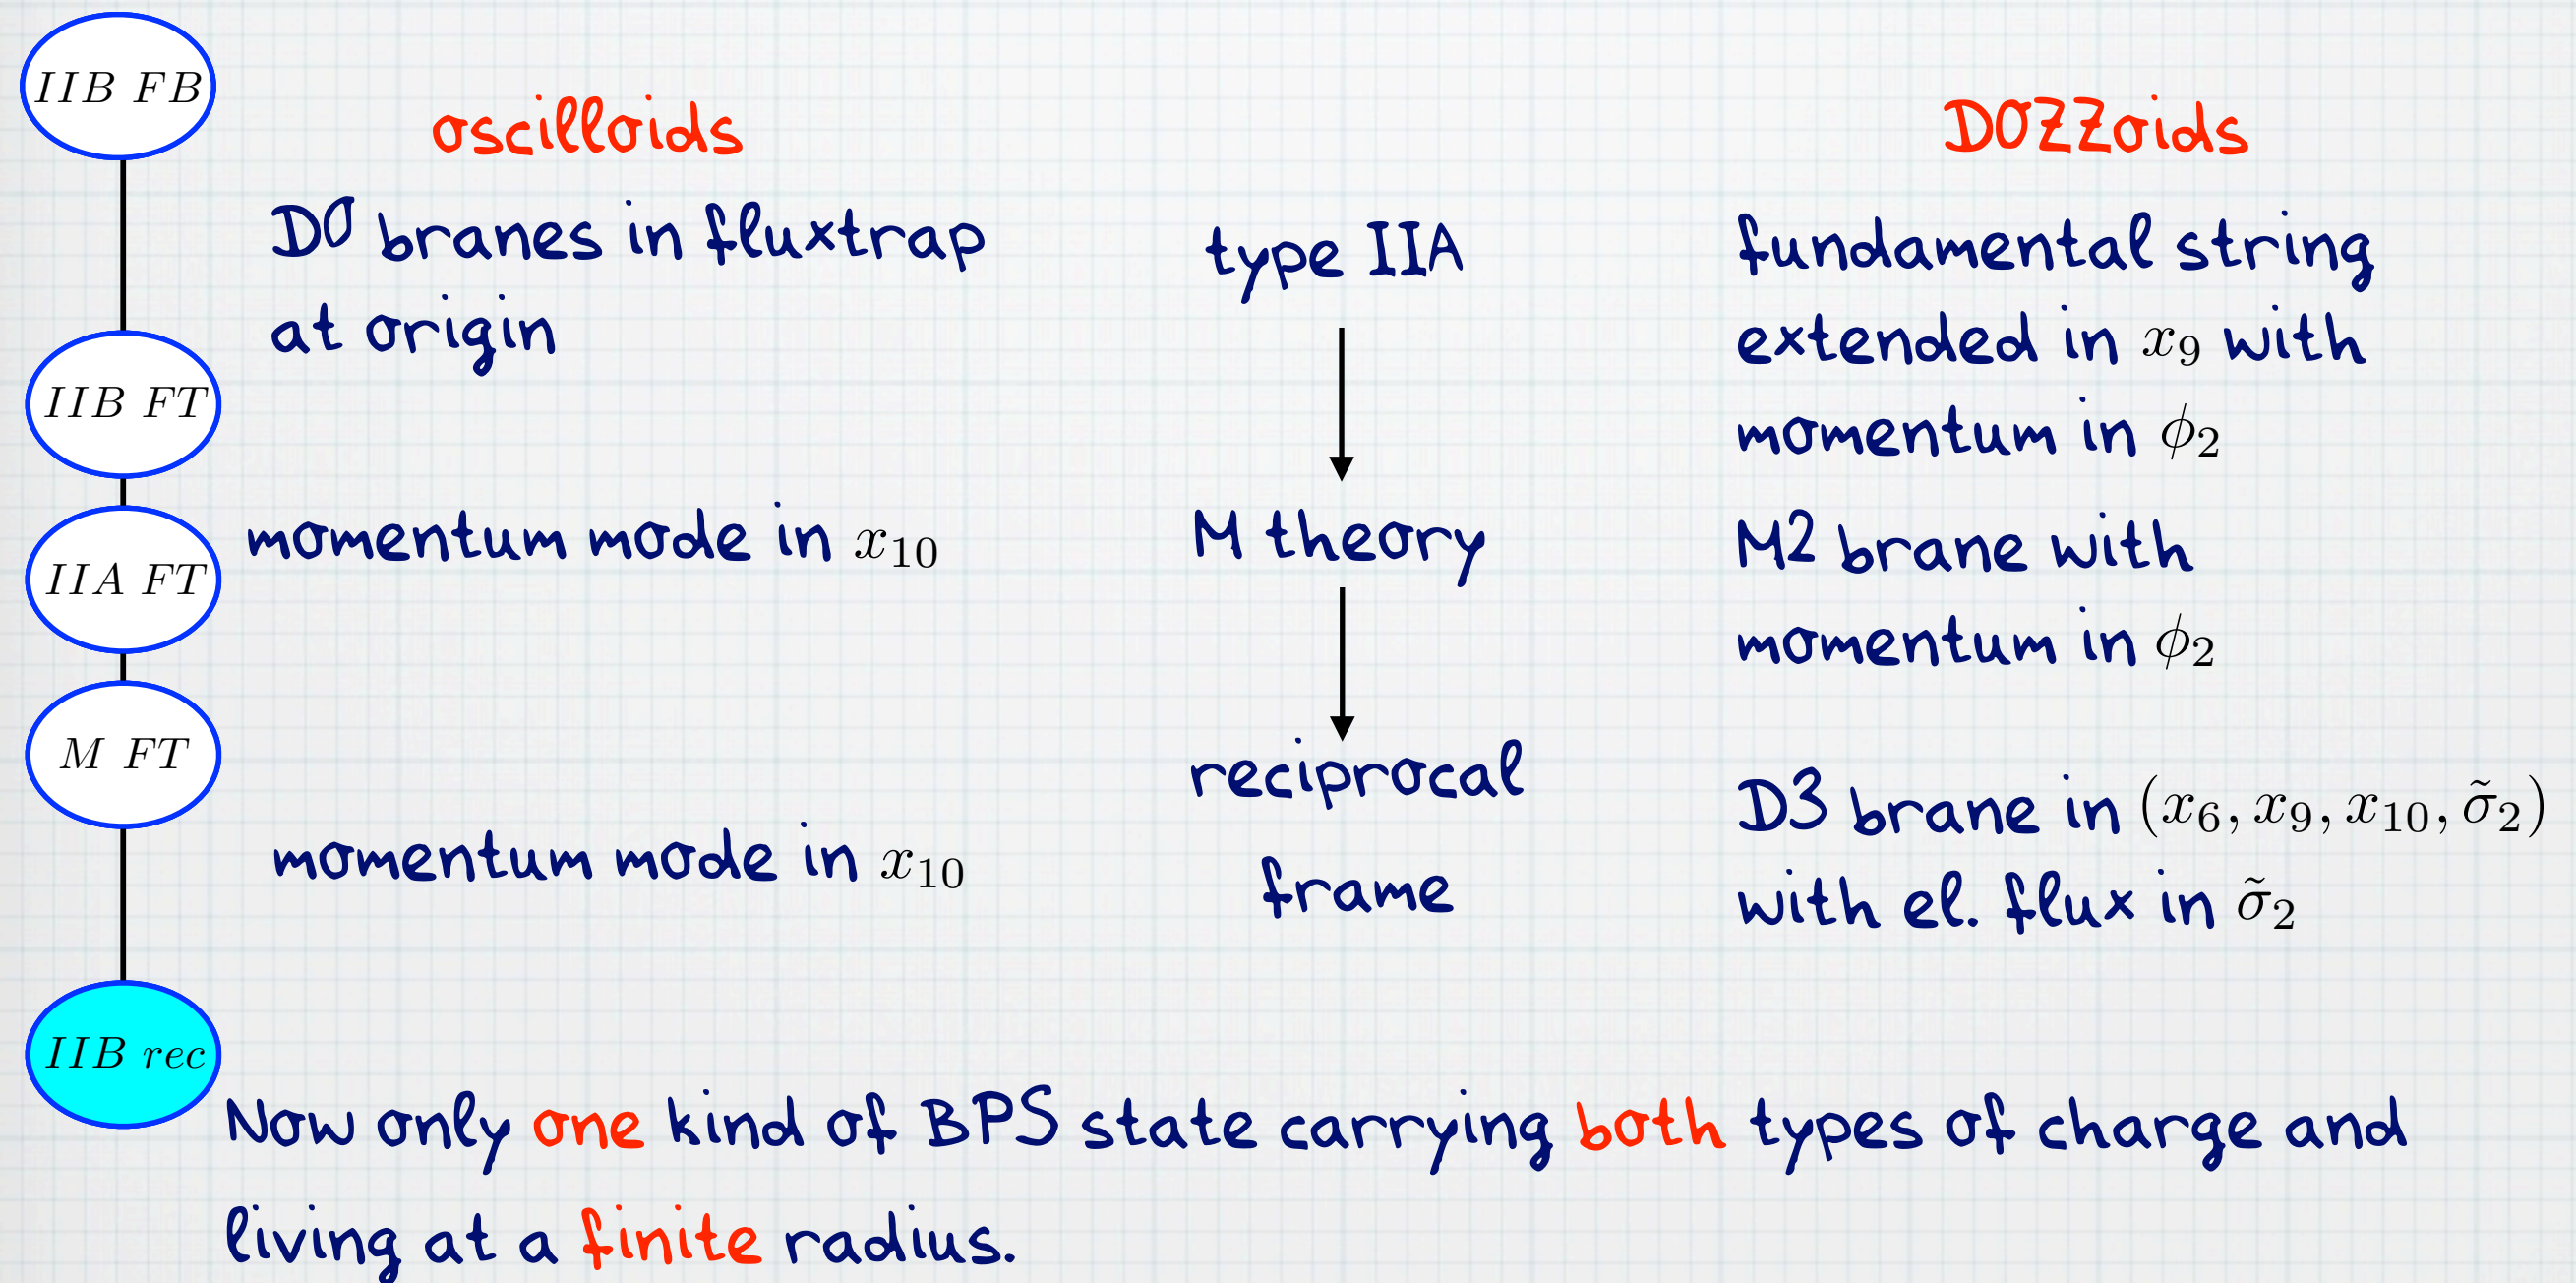 IIB FB
IIB FT
IIA FT
M FT
IIB rec
oscilloids
D0 branes in fluxtrap
at origin
momentum mode in x₁₀
momentum mode in x₁₀
type IIA
M theory
reciprocal
frame
DOZZoids
fundamental string
extended in x₉ with
momentum in ϕ₂
M2 brane with
momentum in ϕ₂
D3 brane in (x₆, x₉, x₁₀, σ̃₂)
with el. flux in σ̃₂
Now only one kind of BPS state carrying both types of charge and
living at a finite radius.